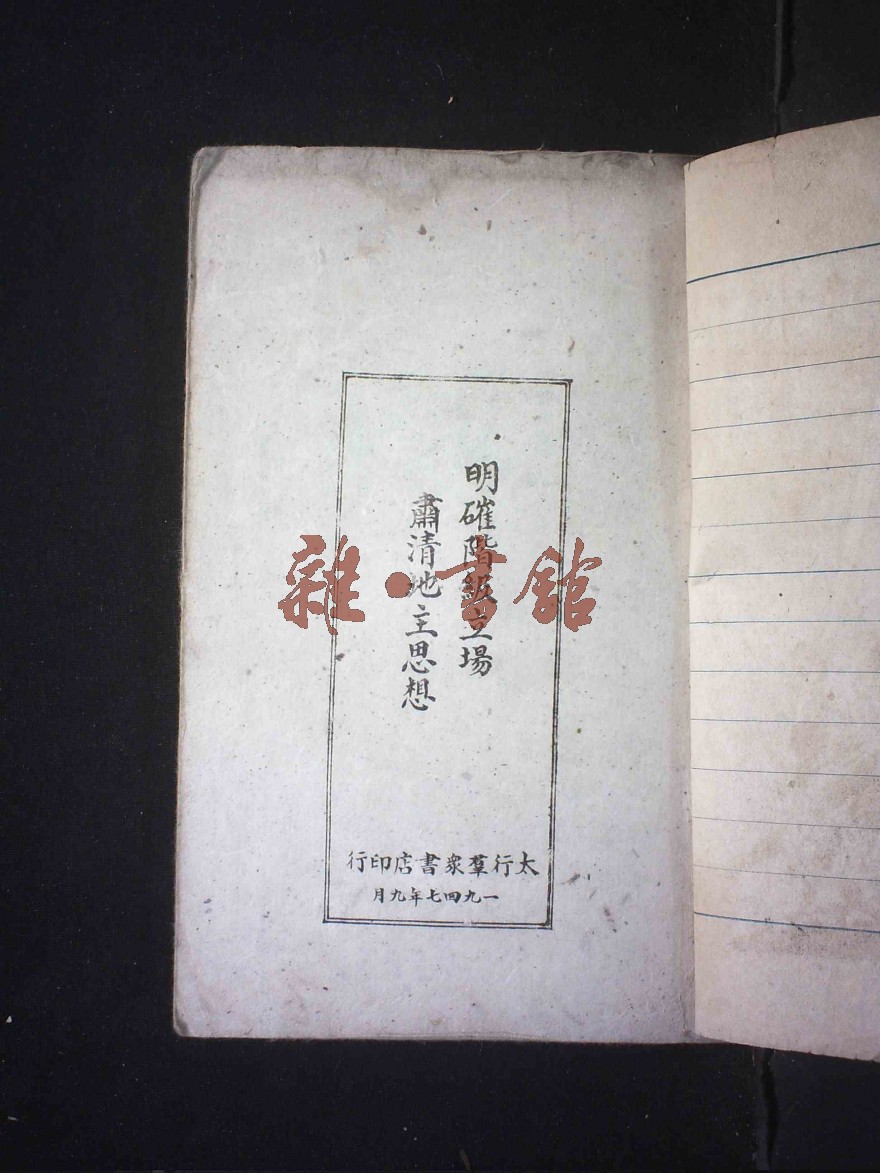 明確階級立場
肅清地主思想
太行羣衆書店印行
一九四七年九月
雜·書館